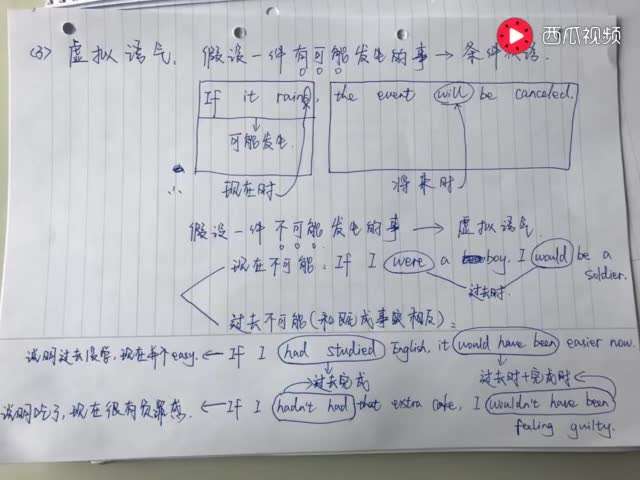 西瓜视频
(3) 虚拟语气. 假设一件有可能发生的事 → 条件状语.
If it rains, the event will be canceled.
可能发生.
现在时 将来时
假设一件不可能发生的事 → 虚拟语气.
现在不可能: If I were a boy. I would be a soldier.
过去时.
过去不可能(和既成事实相反):
说明过去没学, 现在不easy. ← If I had studied English, it would have been easier now.
过去完成 过去时+完成时
说明吃了, 现在很有负罪感. ← If I hadn't had that extra cake, I wouldn't have been
feeling guilty.